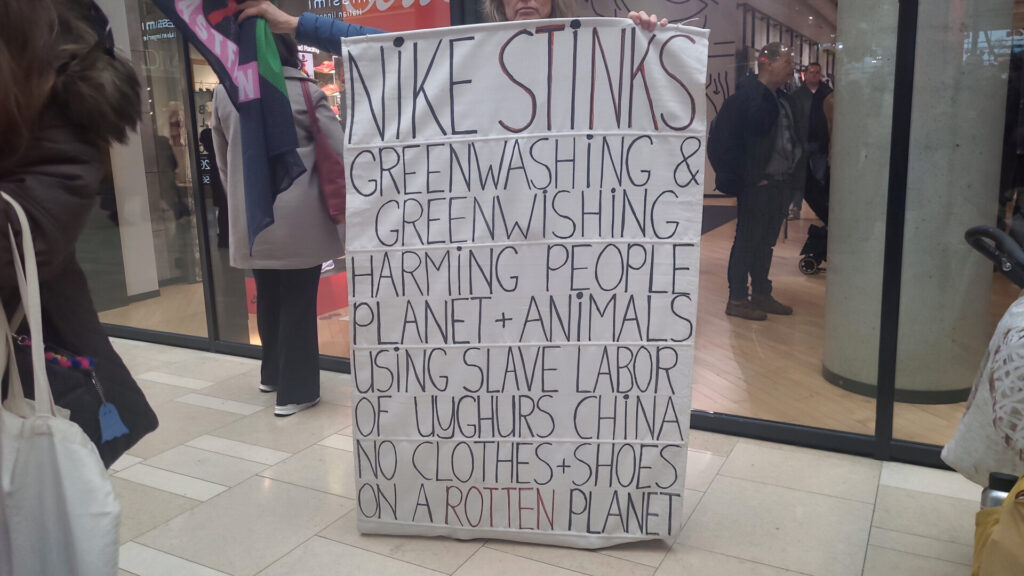 NIKE STINKS
GREENWASHING &
GREENWISHING
HARMING PEOPLE
PLANET + ANIMALS
USING SLAVE LABOR
OF UYGHURS CHINA
NO CLOTHES + SHOES
ON A ROTTEN PLANET